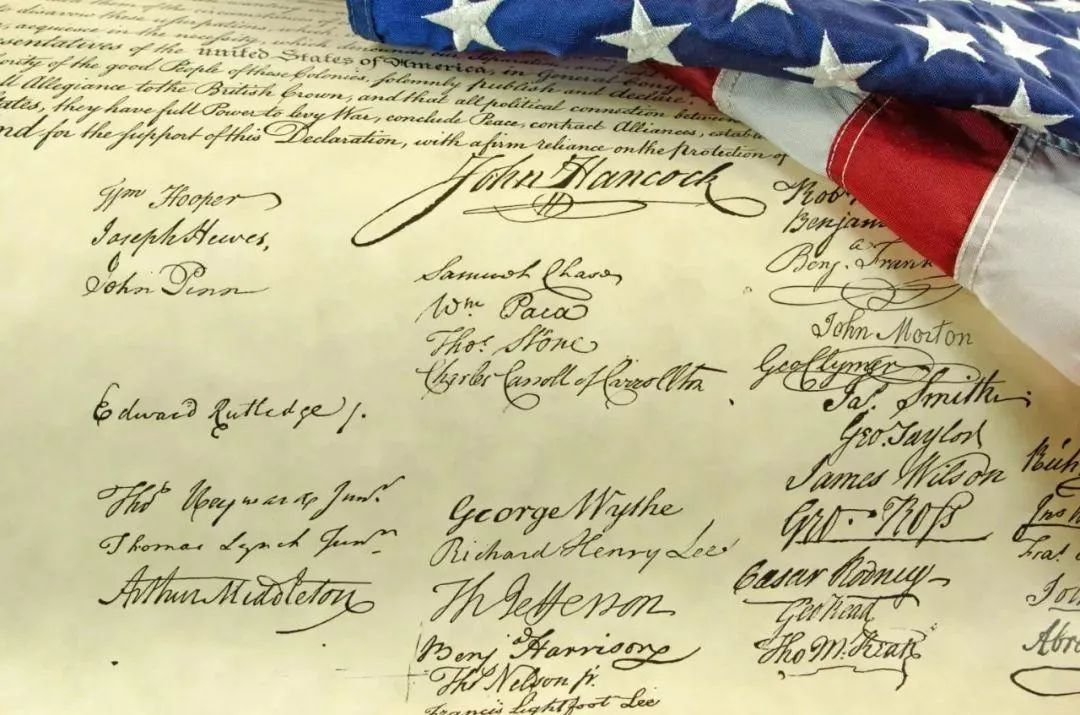 disavow these usurpations
acquiesce in the necessity, which denounces Separation
sentatives of the united States of America, in General Cong
ority of the good People of these Colonies, solemnly publish and declare,
Allegiance to the British Crown, and that all political connection between
tates, they have full Power to levy War, conclude Peace, contract Alliances, establ
nd for the support of this Declaration, with a firm reliance on the Protection of
John Hancock
Wm Hooper
Joseph Hewes,
John Penn
Edward Rutledge /.
Thos Heyward Junr.
Thomas Lynch Junr.
Arthur Middleton
Samuel Chase
Wm. Paca
Thos. Stone
Charles Carroll of Carrollton
George Wythe
Richard Henry Lee
Th Jefferson
Benja Harrison
Thos Nelson jr.
Francis Lightfoot Lee
Rob
Benjam
Benj. Frank
John Morton
Geo Clymer
Jas. Smith.
Geo. Taylor
James Wilson
Geo. Ross
Caesar Rodney
Geo Read
Tho M:Kean
Rich
Jno
Fra
Joh
Abra